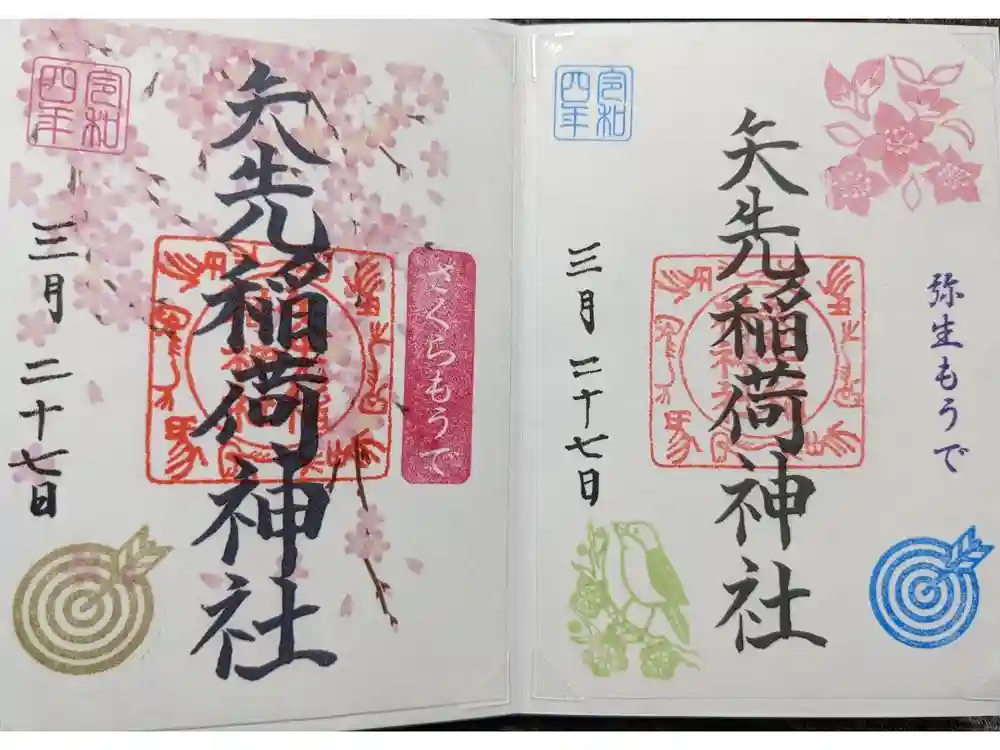 弥生もうで
矢先稲荷神社
令和四年
三月二十七日
さくらもうで
矢先稲荷神社
令和四年
三月二十七日